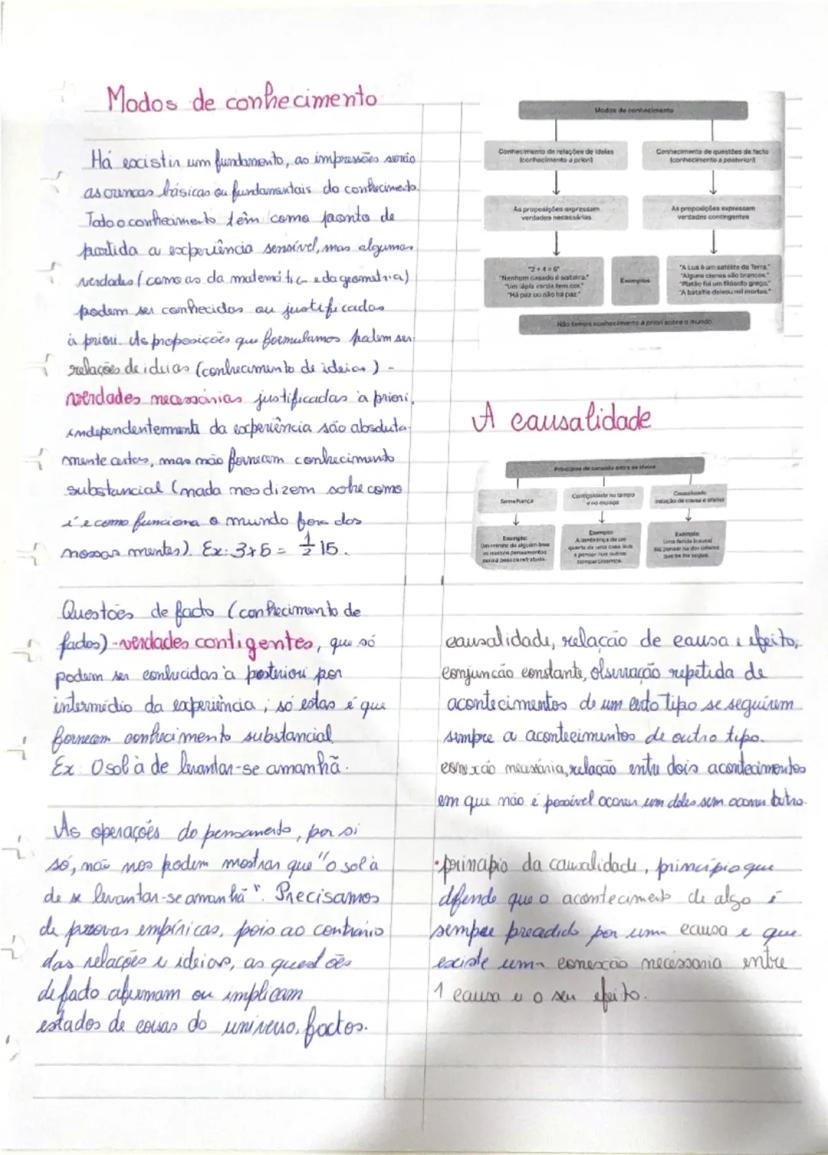 Modos de conhecimento
Há existir um fundamento, as impressões serão
as crenças básicas ou fundamentais do conhecimento.
Todo o conhecimento têm como ponto de
partida a experiência sensível, mas algumas
verdades (como as da matemátic e da geometria)
podem ser conhecidas ou justificadas
à priori. As proposições que formulamos podem ser
relações de ideias (conhecimento de ideias) -
verdades necessárias justificadas à priori,
independentemente da experiência são absoluta-
mente certas, mas não fornecem conhecimento
substancial (nada nos dizem sobre como
é e como funciona o mundo fora das
nossas mentes). Ex: 3+5 = 1/2 15.
Questões de facto (conhecimento de
fados) - verdades contigentes, que só
podem ser conhecidas à posteriori por
intermédio da experiência, só estas é que
fornecem conhecimento substancial
Ex: O sol à de levantar-se amanhã.
As operações do pensamento, por si
só, não nos podem mostrar que "o sol à
de se levantar-se amanhã". Precisamos
de provas empíricas, pois ao contrário
das relações e ideias, as questões
de facto afirmam ou implicam
estados de coisas do universo, factos.
Modos de conhecimento
Conhecimento de relações de ideias
(conhecimento a priori)
Conhecimento de questões de facto
(conhecimento a posteriori)
As proposições expressam
verdades necessárias
As proposições expressam
verdades contingentes
"2 + 4 = 6"
"Nenhum casado é solteiro."
"Um lápis verde tem cor."
"Há paz ou não há paz."
Exemplos
"A Lua é um satélite da Terra."
"Alguns cisnes são brancos."
"Platão foi um filósofo grego."
"A batalha deixou mil mortos."
Não temos conhecimento a priori sobre o mundo.
A causalidade
Princípios de conexão entre as ideias
Semelhança
Contiguidade no tempo
e no espaço
Causalidade
(relação de causa e efeito)
Exemplo:
Um retrato de alguém leva
os nossos pensamentos
para a pessoa retratada.
Exemplo:
A lembrança de um
quarto de uma casa leva
a pensar nos outros
compartimentos.
Exemplo:
Uma ferida
faz pensar na dor
que se lhe segue.
causalidade, relação de causa e efeito,
conjuncão constante, observação repetida de
acontecimentos de um certo tipo se seguirem
sempre a acontecimentos de outro tipo.
conexão necessária, relação entre dois acontecimentos
em que não é possível ocorrer um deles sem ocorrer outro.
• princípio da causalidade, princípio que
defende que o acontecimento de algo é
sempre precedido por uma causa e que
existe uma conexão necessária entre
1 causa e o seu efeito.